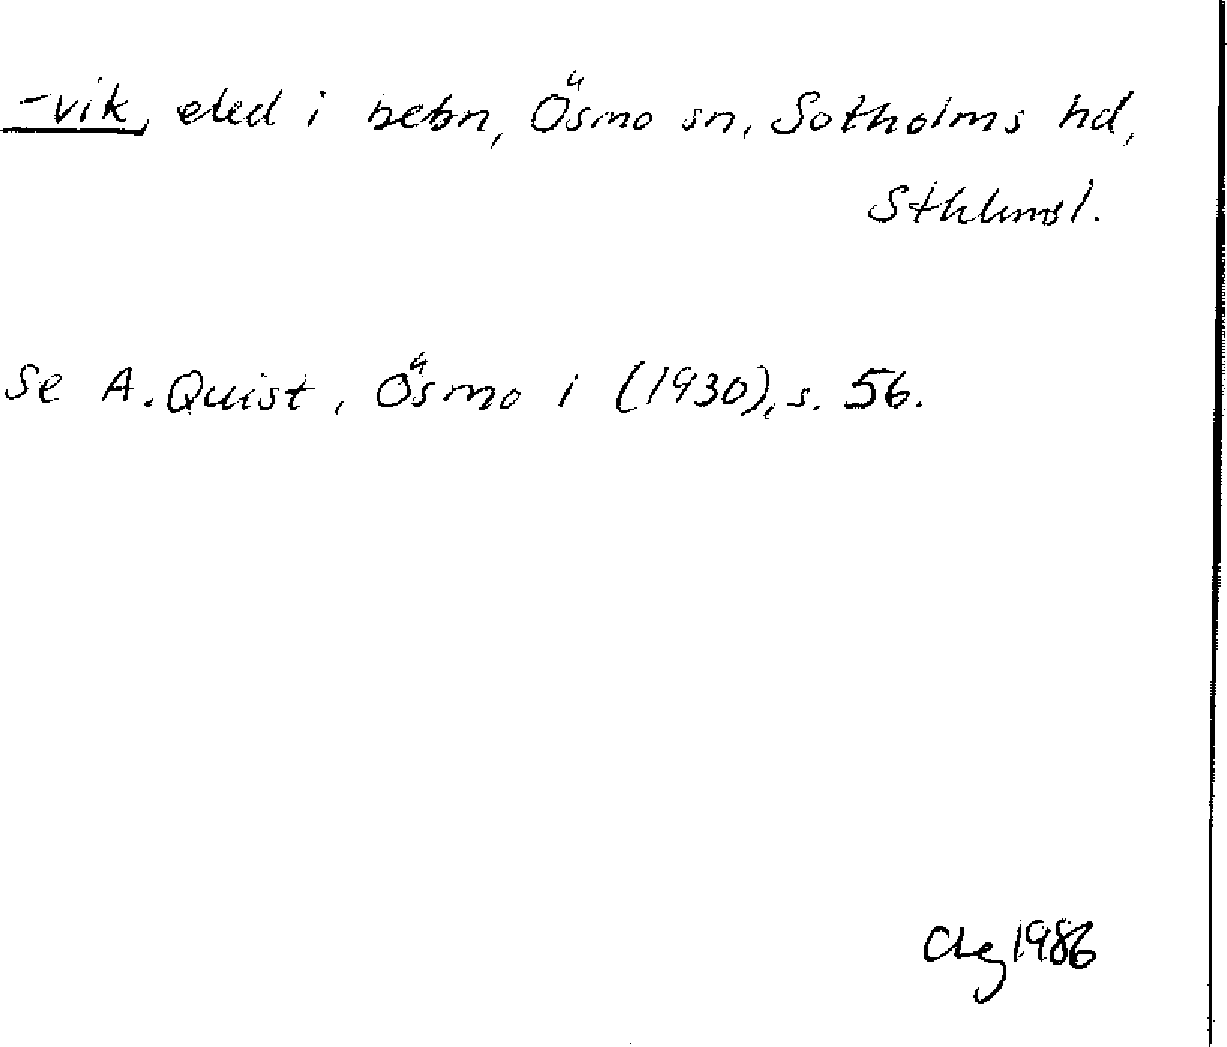 -vik, eled i bebn, Ösmo sn, Sotholms hd,
Sthlmsl.
se A. Quist, Ösmo 1 (1930), s. 56.
1986